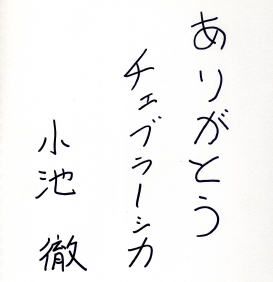 ありがとう
チェブラーシカ
小池 徹